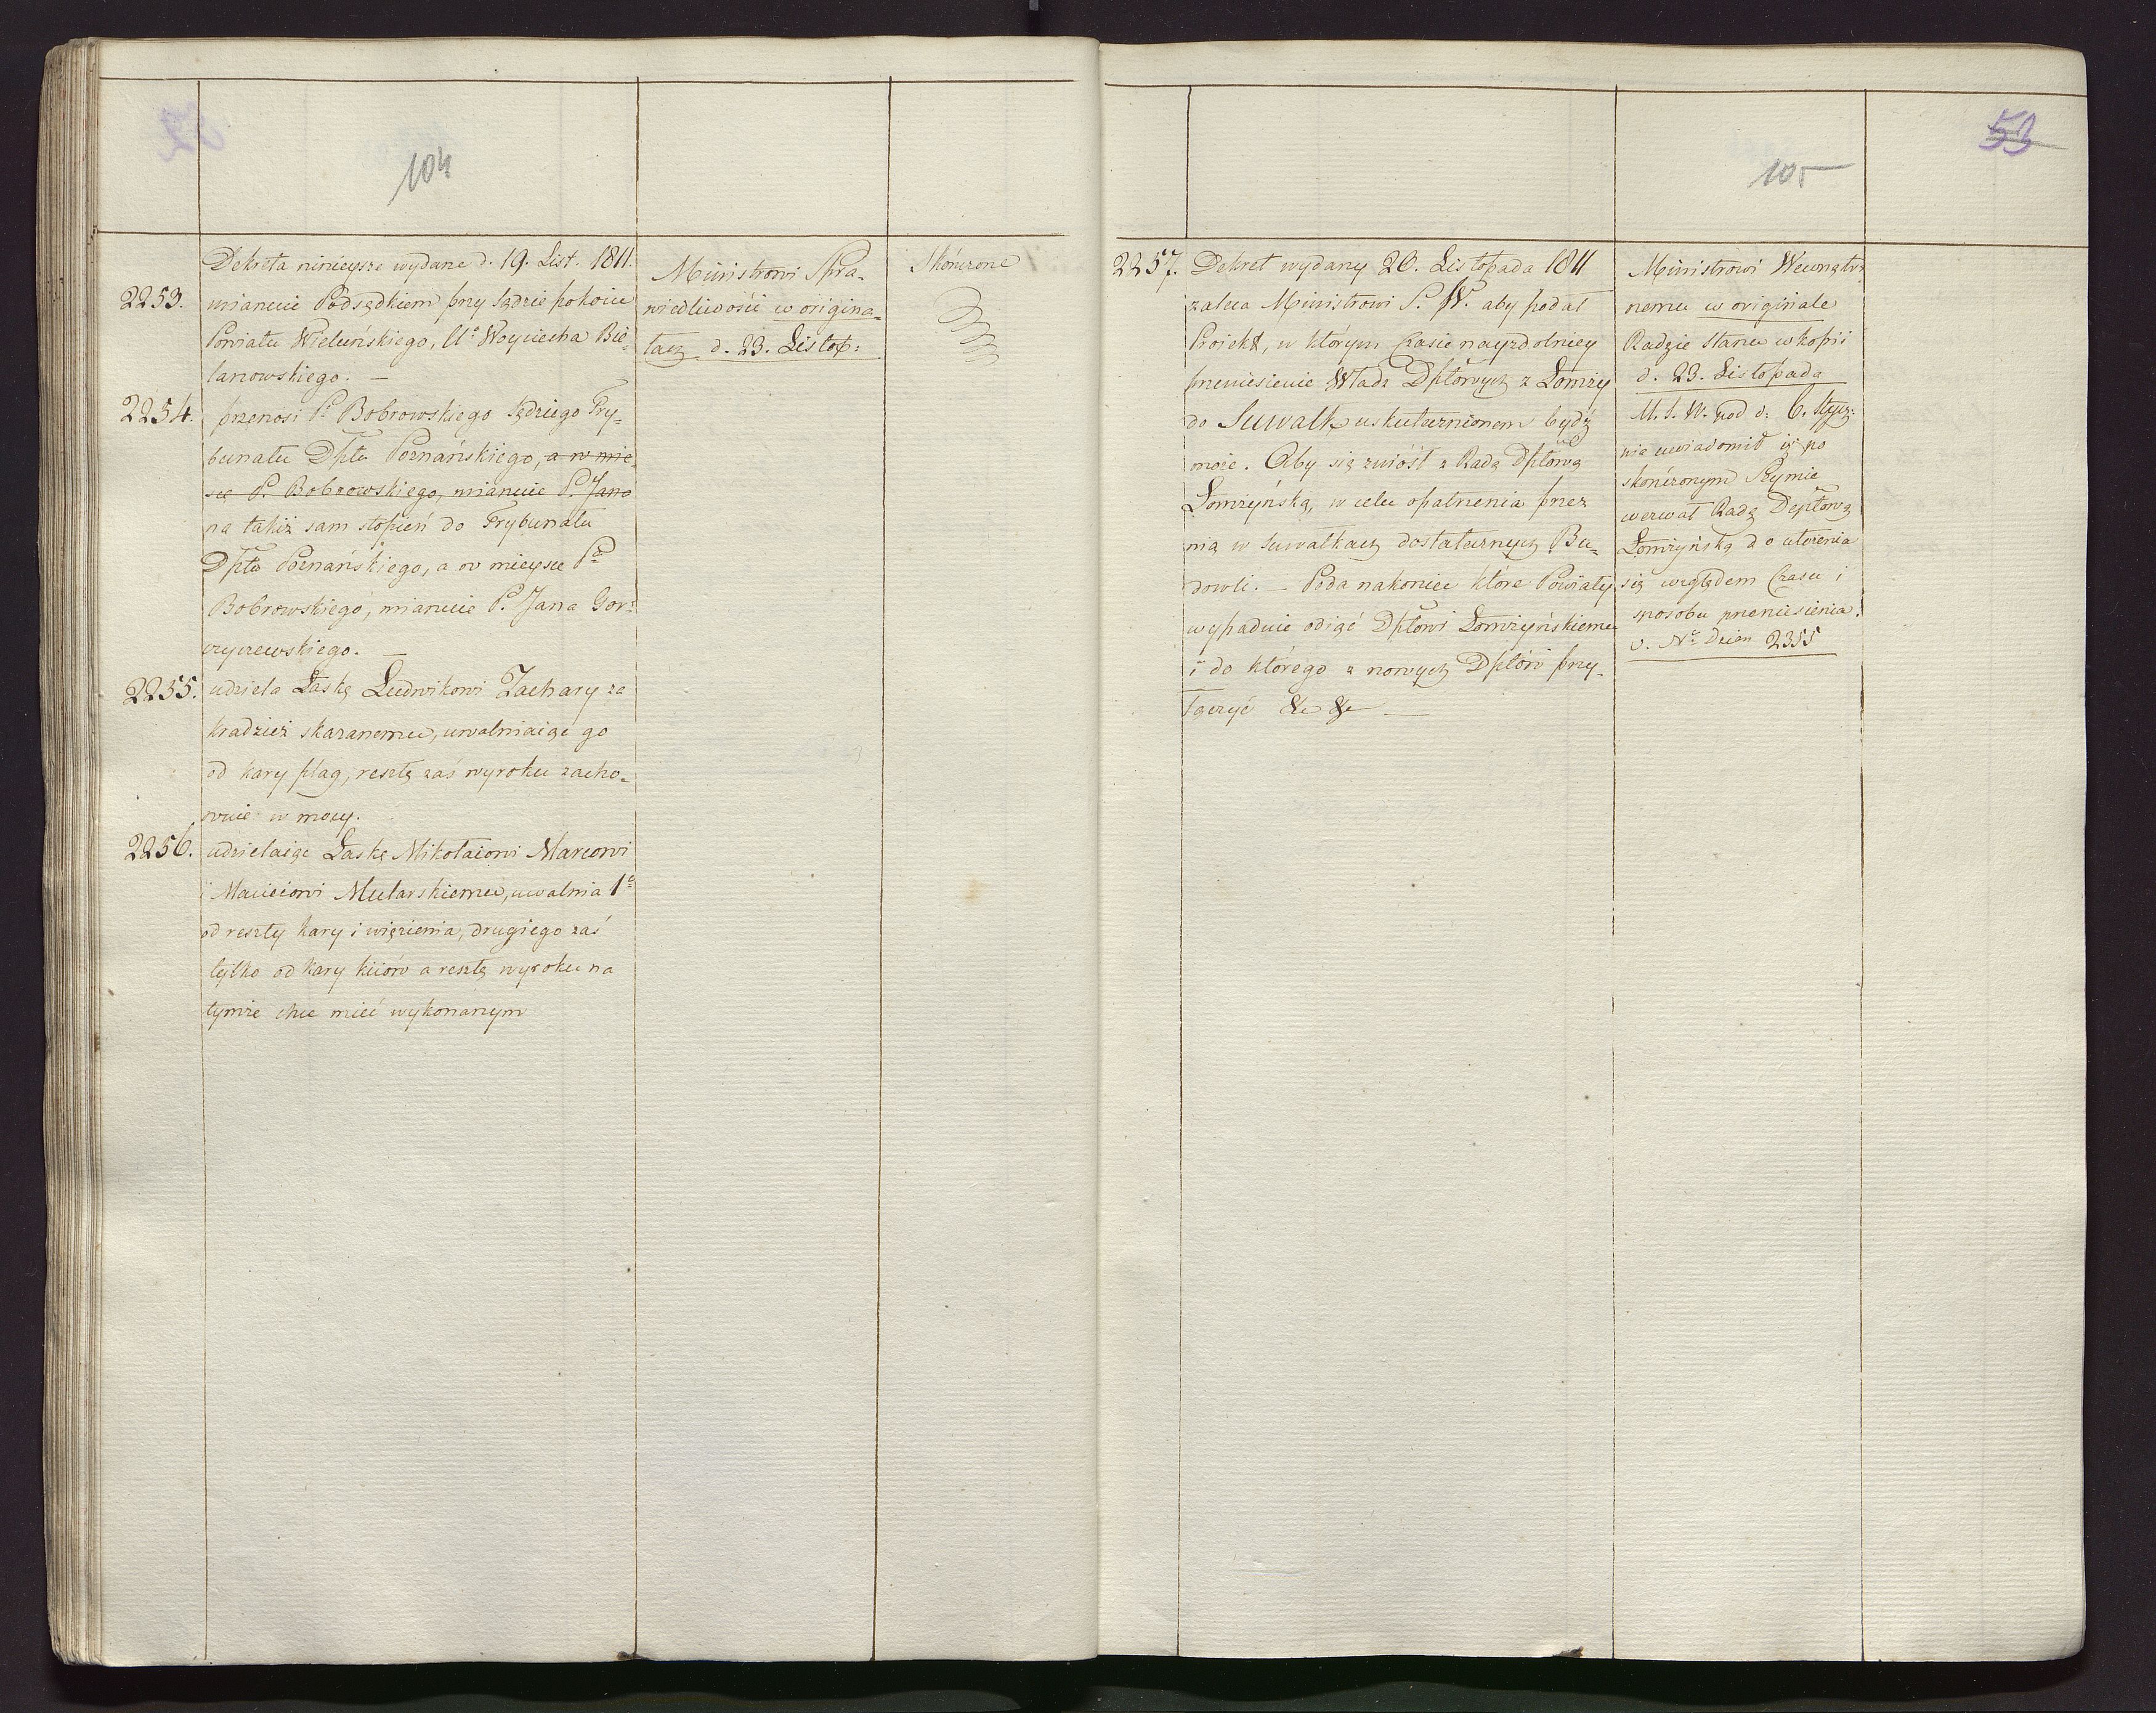 104
Dekreta ninieysze wydane d. 19. List. 1811.
2253. mianuie Podsędkiem przy Sądzie pokoiu
Powiatu Wieluńskiego, Ur Woyciecha Bie-
lanowskiego. —
2254. przenosi Pa Bobrowskiego Sędziego Try-
bunału Dptu Poznańskiego, a w miey-
sce P. Bobrowskiego, mianuie P. Jana
na takiż sam stopień do Trybunału
Dptu Poznańskiego, a w mieysce Pa
Bobrowskiego, mianuie P. Jana Gor-
czyczewskiego. —
2255. udziela Łaskę Ludwikowi Zachary za
kradzież skazanemu, uwalniaiąc go
od kary plag, resztę zaś wyroku zacho-
wuie w mocy.
2256. udzielaiąc Łaskę Mikołaiowi Marcowi
i Macieiowi Mularskiemu, uwalnia 1o
od reszty kary i więzienia, drugiego zaś
tylko od kary kiiów a resztę wyroku na
tymże chce mieć wykonanym
Ministrowi Spra-
wiedliwości w origina-
łach d. 23. Listop:
Skończone
53
105
2257. Dekret wydany 20. Listopada 1811
zaleca Ministrowi S. W. aby podał
Proiekt, w którym Czasie nayzdolniey
przeniesienie Władz Dptowych z Łomży
do Suwałk uskutecznionem bydź
może. Aby się zniósł z Radą Dptową
Łomżyńską, w celu opatrzenia przez
nią w Suwałkach dostatecznych Bu-
dowli. — Poda nakoniec które Powiaty
wypadnie odiąć Dptowi Łomżyńskiemu
i do którego z nowych Dptów przy-
łączyć &c &c —
Ministrowi Wewnętrz
nemu w originale
Radzie Stanu w kopii
d. 23. Listopada
M. S. W. pod d: 6. Stycz:
nia uwiadomił iż po
skończonym Seymie
wezwał Radę Deptową
Łomżyńską do ułożenia
się względem Czasu i
sposobu przeniesienia.
v. No Dzien 2355